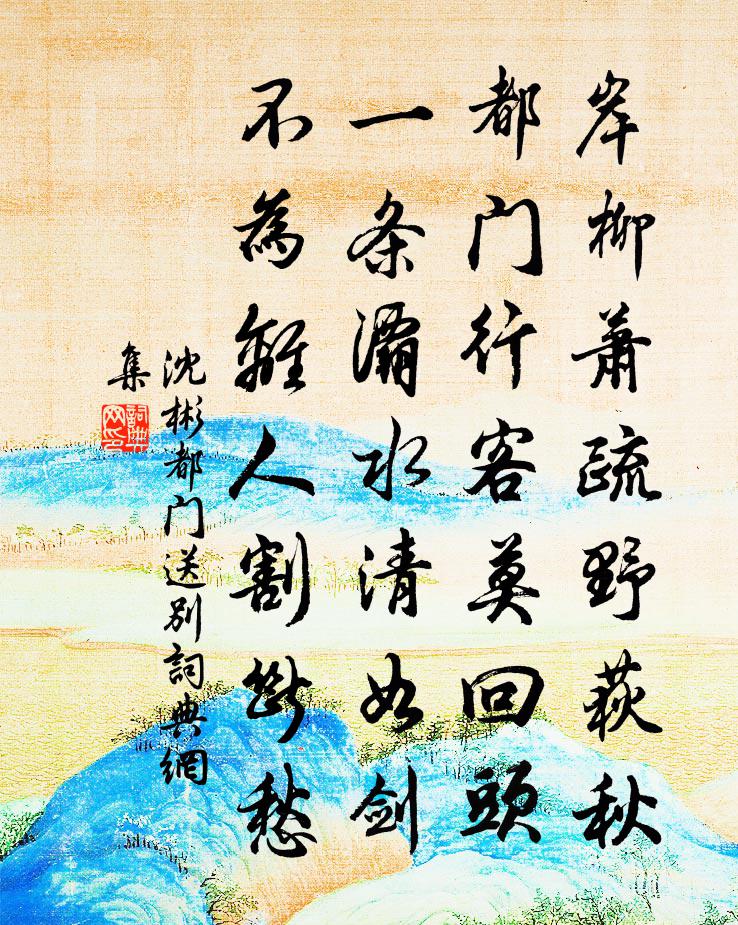 岸柳萧疏野荻秋
都门行客莫回头
一条灞水清如剑
不为離人割断愁
沈彬都门送别詞典網
集
詞典网印